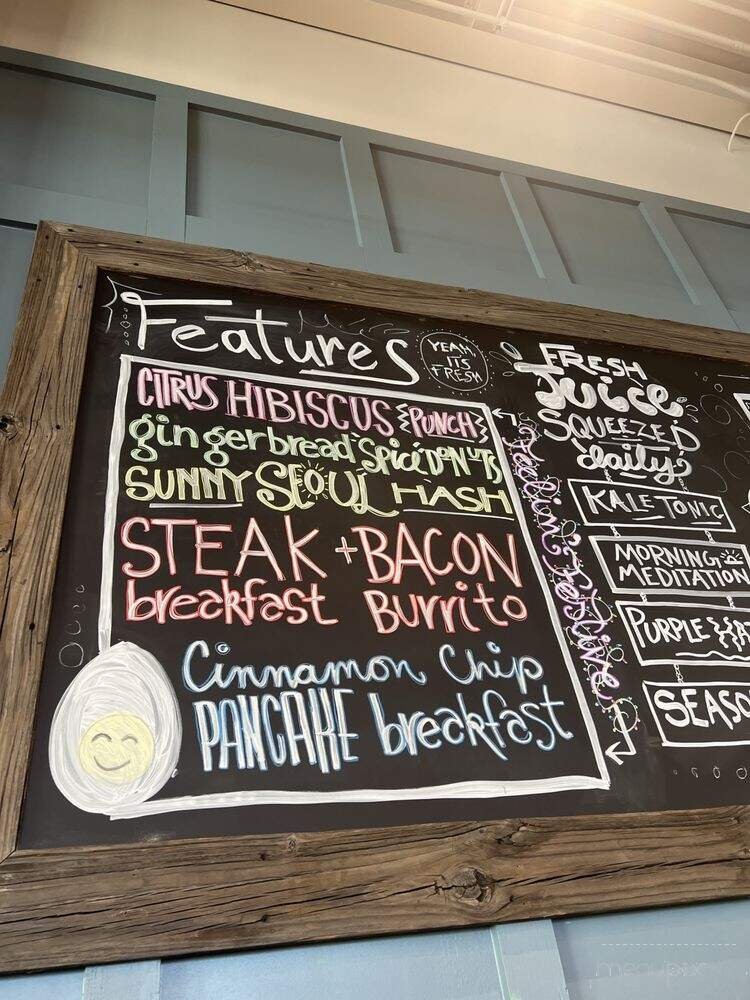 Features
YEAH,
ITS
FRESH
CITRUS HIBISCUS PUNCH
gingerbread Spice DONUTS
SUNNY SEOUL HASH
STEAK + BACON
breakfast Burrito
Cinnamon Chip
PANCAKE breakfast
Feelin' Festive
FRESH
Juice
SQUEEZED
daily
KALE TONIC
MORNING
MEDITATION
PURPLE
menupix